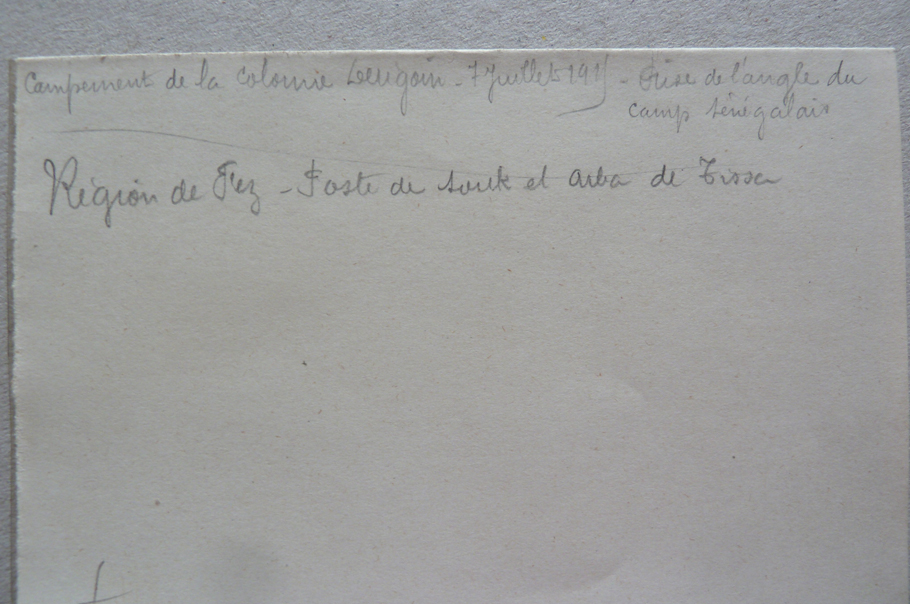 Campement de la Colonne - 7 Juillet 191 - Prise de l'angle du
camp sénégalais
Région de Fez - Poste de Souk el Arba de Tissa